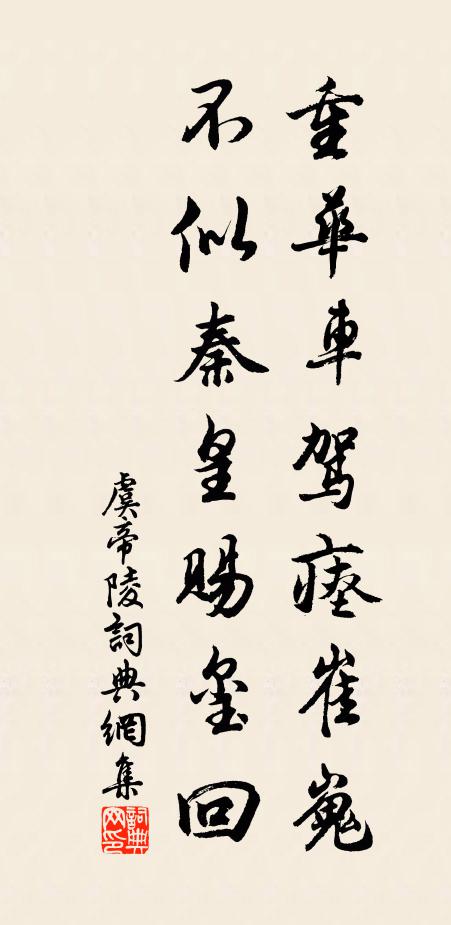 重華車駕瘞崔嵬
不似秦皇賜璽回
虞帝陵詞典網集
詞典网印